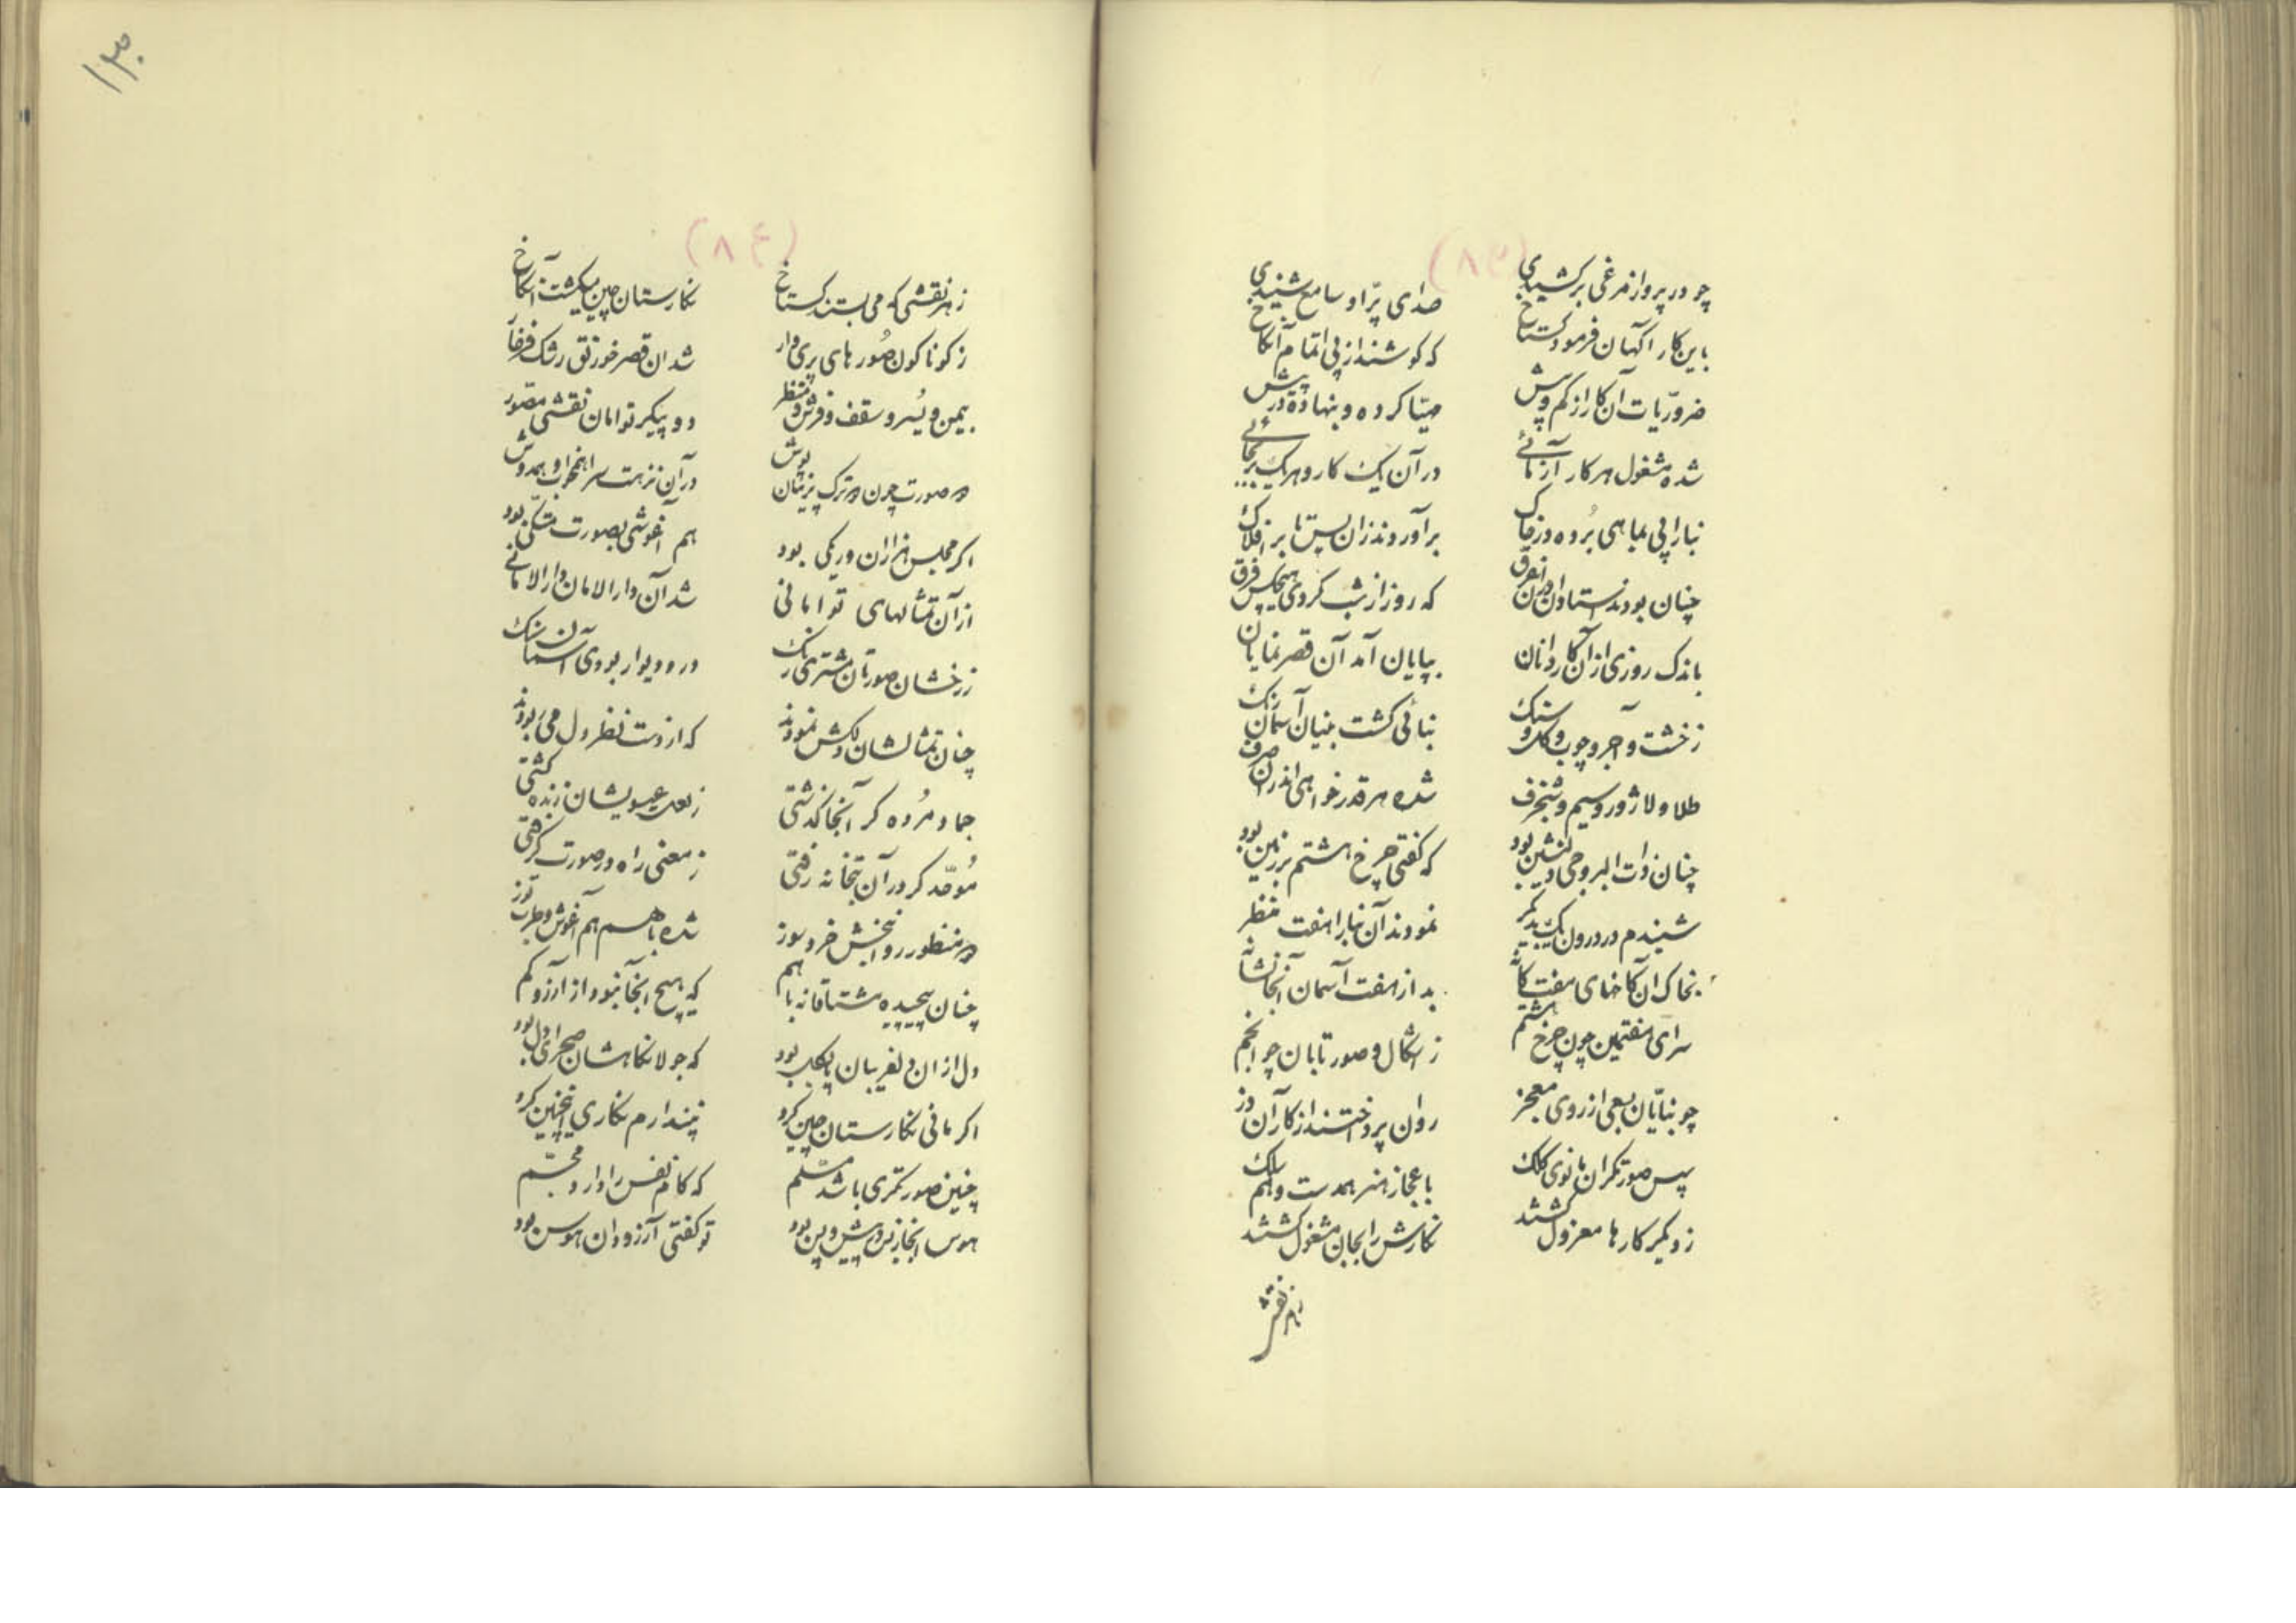 (۸۳)
چو در پرواز مرغی برکشیدی صدای پر او سامع شنیدی
باین کار اکهان فرمود کستاخ که کوشند از پی اتمام آنکاخ
ضروریات آن کار از کم و بیش مهیا کرده و بنهاده در پیش
شده مشغول هر کار آزمائی در آن یک کار و هر یک بجائی
بنا را پی بماهی برده در خاک برآوردند زان پس تا بر افلاک
چنان بودند استادان در آن غرق که روز از شب نکردی هیچکس فرق
باندک روزی از آن کاردانان بپایان آمد آن قصر نمایان
ز خشت و آجر و چوب و کل و سنک بنائی کشت بنیان آسمان رنک
طلا و لاژورد و سیم و شنجرف شده هر قدر خواهی اندر آن صرف
چنان ذات البروجی دلنشین بود که کفتی چرخ هشتم بر زمین بود
شنیدم در درون یک بدیکر نمودند آن بنا را هفت منظر
بخاک آن کاخهای هفت کانه بد از هفت آسمان آنجا نشانه
سرای هفتمین چون چرخ هشتم ز اشکال و صور تابان چو انجم
چو بنایان بسعی از روی معجز روان پرداختند از کار آن دز
پس صورتکران مانوی کلک باعجاز هنر همدست و هم سلک
ز دیکر کارها معزول کشتند نکارش را بجان مشغول کشتند
ز هر نقش
۱۳۰
(۸٤)
ز هر نقشی که می بستند کستاخ نکارستان چین میکشت آنکاخ
ز کوناکون صورهای پری وار شد آن قصر خورنق رشک فرخار
یمین و یسر و سقف و فرش و منظر دو پیکر توامان نقشی مصور
دو صورت چون دو ترک پرنیان پوش در آن نزهت سرا همخواب و همدوش
اکر مجلس هزاران ور یکی بود هم آغوشی بصورت متکی بود
از آن تمثالهای توامانی شد آن دارالامان دارالامانی
ز رخشان صورتان مشتری رنک در و دیوار بودی آسمان سنک
چنان تمثالشان دلکش نمودند که از دست نظر دل می ربودند
جماد مرده کر آنجا کذشتی ز لعل عیسویشان زنده کشتی
موحد کر در آن بتخانه رفتی ز معنی راه در صورت کرفتی
دو منظور روانبخش خرد سوز شده با هم هم آغوش و طرب توز
چنان پیچیده مشتاقانه با هم که هیچ آنجا نبود از آرزو کم
دل از آن دلفریبان پا بکل بود که جولانکاهشان صحرای دل بود
اکر مانی نکارستان چین کرد نپندارم نکاری اینچنین کرد
چنین صورتکری باشد مسلم که کام نفس را دارد مجسم
هوس آنجا ز بس در پیش و پس بود تو کفتی آرزو دان هوس بود